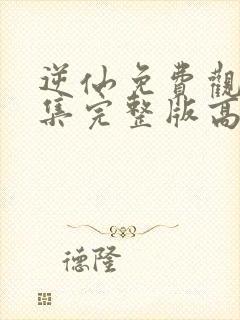 逆仙免費觀
集完整版高
德隆